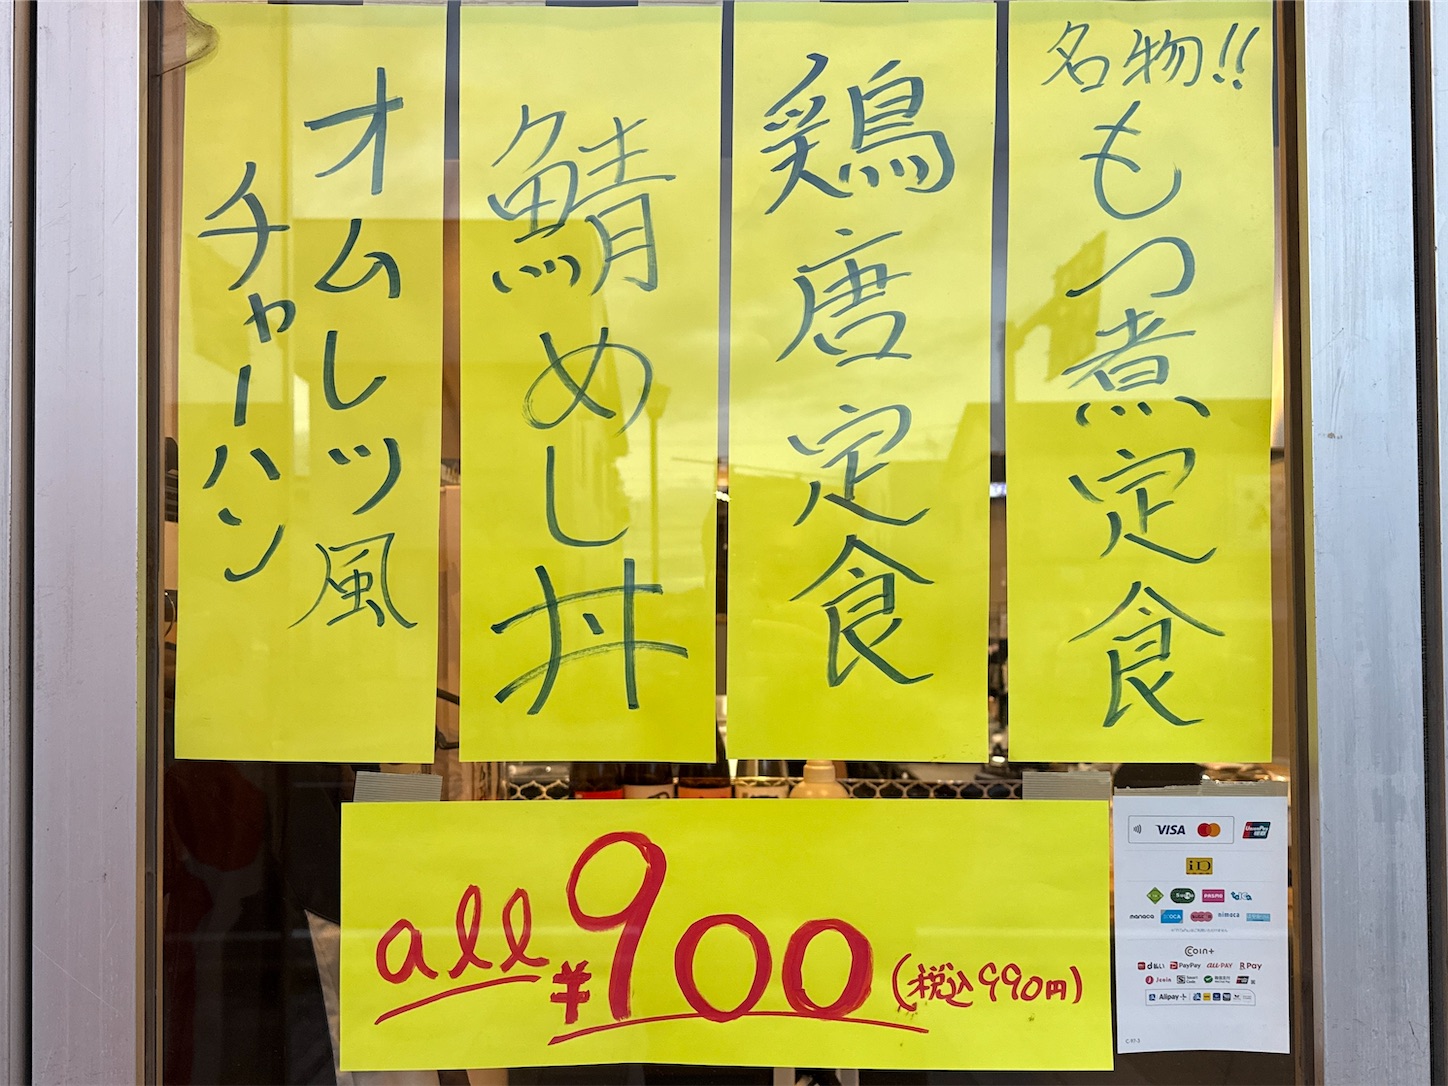 名物!!
もつ煮定食
鶏唐定食
鯖めし丼
オムレツ風
チャーハン
all ¥900 (税込990円)
VISA
UnionPay
iD
PASMO
manaca
nimoca
COIN+
d払い PayPay au PAY R Pay
J-Coin Smart Code
Alipay+
C 97-3